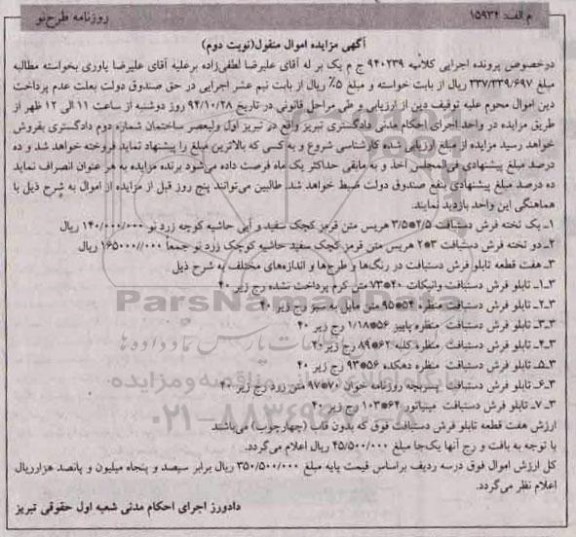 م الف: ۱۵۹۳۴
روزنامه طرح‌نو
آگهی مزایده اموال منقول(نوبت دوم)
درخصوص پرونده اجرایی کلاسه ۹۴۰۲۳۹ ج م یک بر له آقای علیرضا لطفی‌زاده برعلیه آقای علیرضا یاوری بخواسته مطالبه
مبلغ ۳۳۷/۳۳۹/۶۹۷ ریال از بابت خواسته و مبلغ ۵٪ ریال از بابت نیم عشر اجرایی در حق صندوق دولت بعلت عدم پرداخت
دین اموال محوم علیه توقیف دین از ارزیابی و طی مراحل قانونی در تاریخ ۹۴/۱۰/۲۸ روز دوشنبه از ساعت ۱۱ الی ۱۲ ظهر از
طریق مزایده در واحد اجرای احکام مدنی دادگستری تبریز واقع در تبریز اول ولیعصر ساختمان شماره دوم دادگستری بفروش
خواهد رسید مزایده از مبلغ ارزیابی شده کارشناسی شروع و به کسی که بالاترین مبلغ را پیشنهاد نماید فروخته خواهد شد و ده
درصد مبلغ پیشنهادی فی‌المجلس أخذ و به مابقی حداکثر یک ماه فرصت داده می‌شود برنده مزایده به هر عنوان انصراف نماید
ده درصد مبلغ پیشنهادی بنفع صندوق دولت ضبط خواهد شد. طالبین می‌توانند پنج روز قبل از مزایده از اموال به شرح ذیل با
هماهنگی این واحد بازدید نمایند.
۱ـ یک تخته فرش دستبافت ۲/۵*۳/۵ هریس متن قرمز کچک سفید و آبی حاشیه کوجه زرد نو ۱۴۰/۰۰۰/۰۰۰ ریال
۲ـ دو تخته فرش دستبافت ۳*۲ هریس متن قرمز کچک سفید حاشیه کوچک زرد نو جمعا ۱۶۵۰۰۰//۰۰۰ ریال
۳ـ هفت قطعه تابلو فرش دستبافت در رنگ‌ها و طرح‌ها و اندازه‌های مختلف به شرح ذیل
۳ـ۱ـ تابلو فرش دستبافت واتیکان ۴۰*۷۳ متن کرم پرداخت نشده رج زیر ۴۰
۳ـ۲ـ تابلو فرش دستبافت منظره ۵۴*۹۵ متن مایل به سبز رج زیر ۴۰
۳ـ۳ـ تابلو فرش دستبافت منظره پاییز ۵۶*۱/۱۸ رج زیر ۴۰
۳ـ۴ـ تابلو فرش دستبافت منظره کلبه ۶۲*۸۹ رج زیر ۴۰
۳ـ۵ـ تابلو فرش دستبافت منظره دهکده ۵۶*۹۳ رج زیر ۴۰
۳ـ۶ـ تابلو فرش دستبافت پسربچه روزنامه خوان ۷۰*۹۷ متن زرد رج زیر ۴۰
۳ـ۷ـ تابلو فرش دستبافت مینیاتور ۶۴*۱۰۳ رج زیر ۴۰
ارزش هفت قطعه تابلو فرش دستبافت فوق که بدون قاب (چهارچوب) می‌باشند
با توجه به بافت و رج آنها یک‌جا مبلغ ۴۵/۵۰۰/۰۰۰ ریال اعلام می‌گردد.
کل ارزش اموال فوق درسه ردیف براساس قیمت پایه مبلغ ۳۵۰/۵۰۰/۰۰۰ ریال برابر سیصد و پنجاه میلیون و پانصد هزارریال
اعلام نظر می‌گردد.
دادورز اجرای احکام مدنی شعبه اول حقوقی تبریز
ParsNamadData